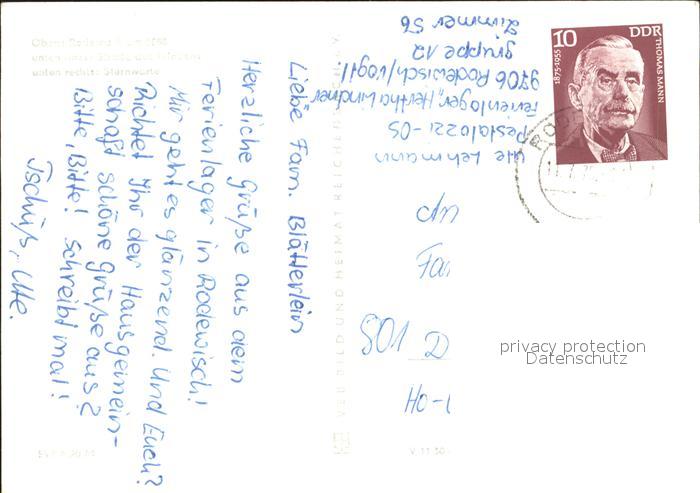 Liebe Fam. Blätterlein
Herzliche Grüße aus dem
Ferienlager in Rodewisch!
Mir geht es glänzend. Und Euch?
Richtet Ihr der Hausgemein-
schaft schöne Grüße aus?
Bitte, Bitte! Schreibt mal!
Tschüß, Ute.
Ute Lehmann
Pestalozzi-OS
Ferienlager „Hertha Lindner"
9706 Rodewisch/Vogtl.
Gruppe 12
Zimmer 56
10
DDR
THOMAS MANN
1875-1955
An
Fa
801 D
Ho-
privacy protection
Datenschutz
VEB BILD UND HEIMAT REICHENBACH
unten rechts Sternwarte
V 11 50